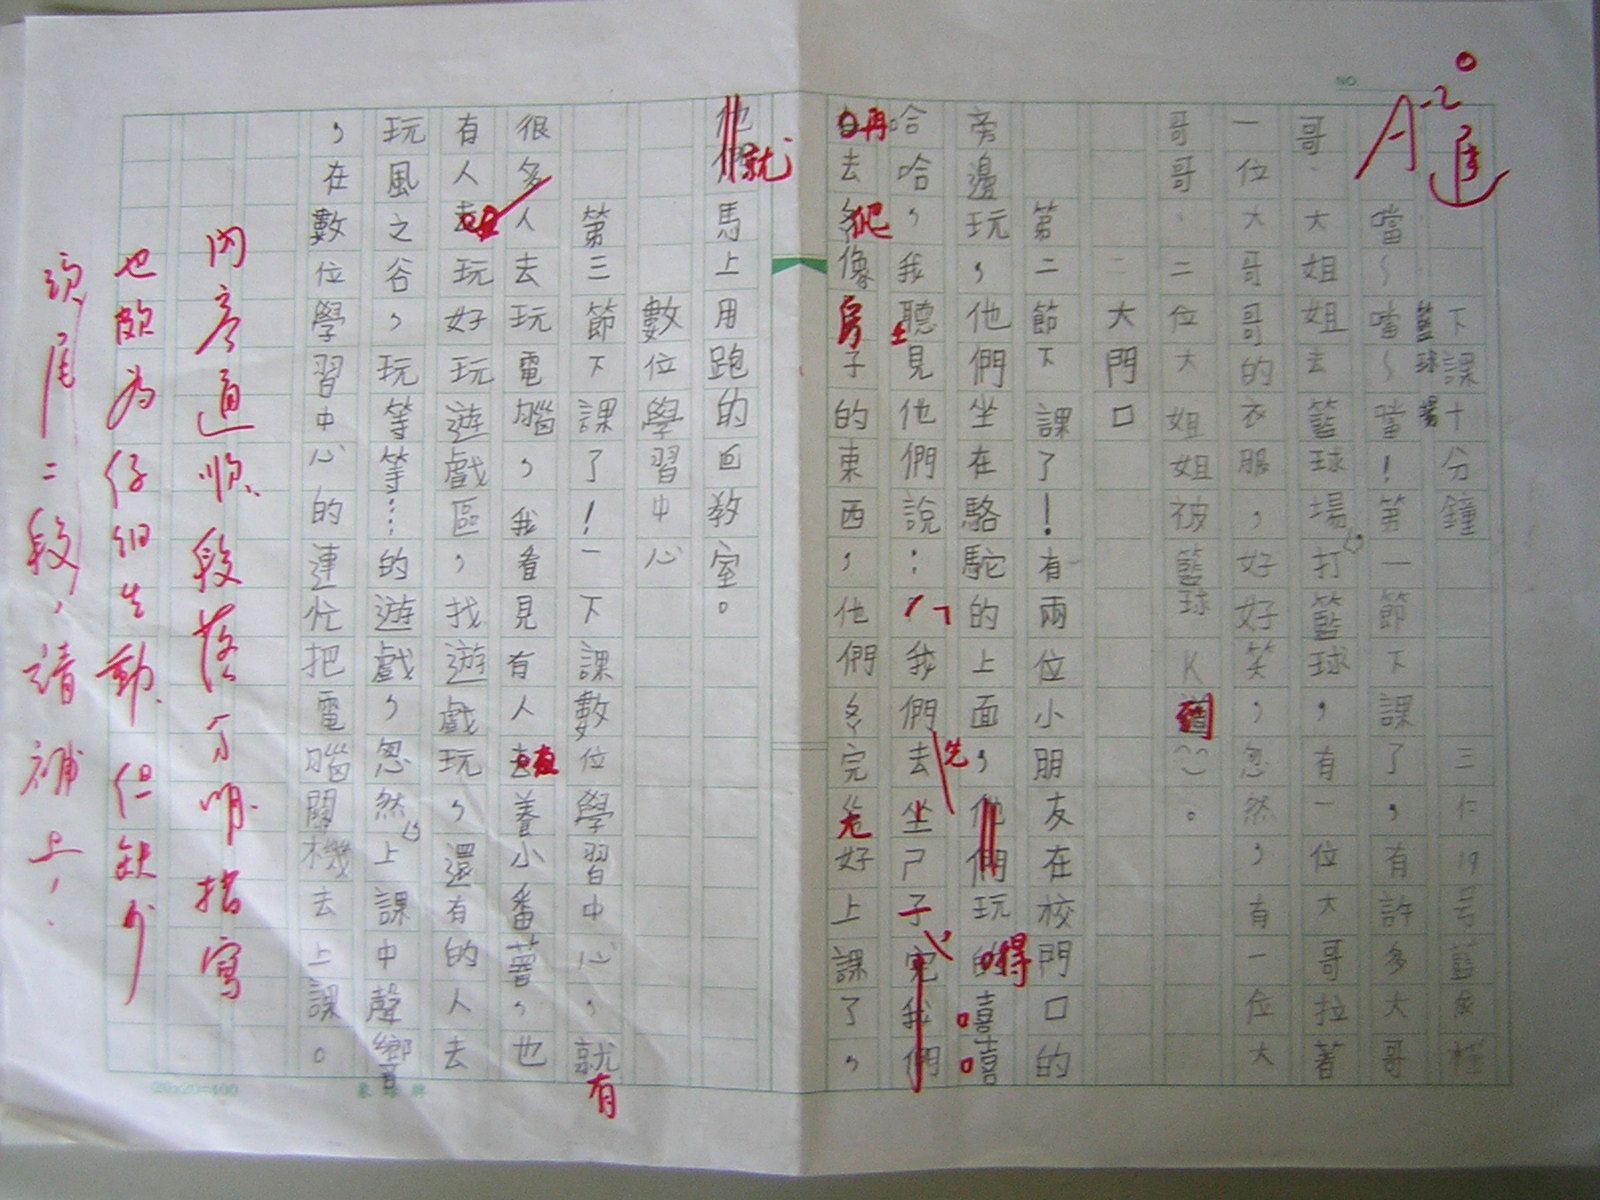 NO.
A-2
下課十分鐘 三仁19号
籃球場
噹~噹~噹!第一節下課了,有許多大哥
哥、大姐姐去籃球場打籃球,有一位大哥拉著
一位大哥哥的衣服,好好笑,忽然,有一位大
哥哥、二位大姐姐被籃球K
二大門口
第二節下課了!有兩位小朋友在校門口的
旁邊玩,他們坐在駱駝的上面,他們玩的嘻嘻
得
哈哈,我聽見他們說:「我們去坐尸子完我們
先
去爬像房子的東西,他們爬完先好上課了,
再
他們馬上用跑的回教室。
就
數位學習中心
第三節下課了!一下課數位學習中心,就
有
很多人去玩電腦,我看見有人去養小番薯,也
有人去玩好玩遊戲區,找遊戲玩,還有的人去
玩風之谷,玩等等⋯的遊戲,忽然上課中聲響
,在數位學習中心的連忙把電腦關機去上課。
內容通順、段落分明、描寫
也頗為仔細生動、但缺少
頭尾二段,請補上。
20x20=400